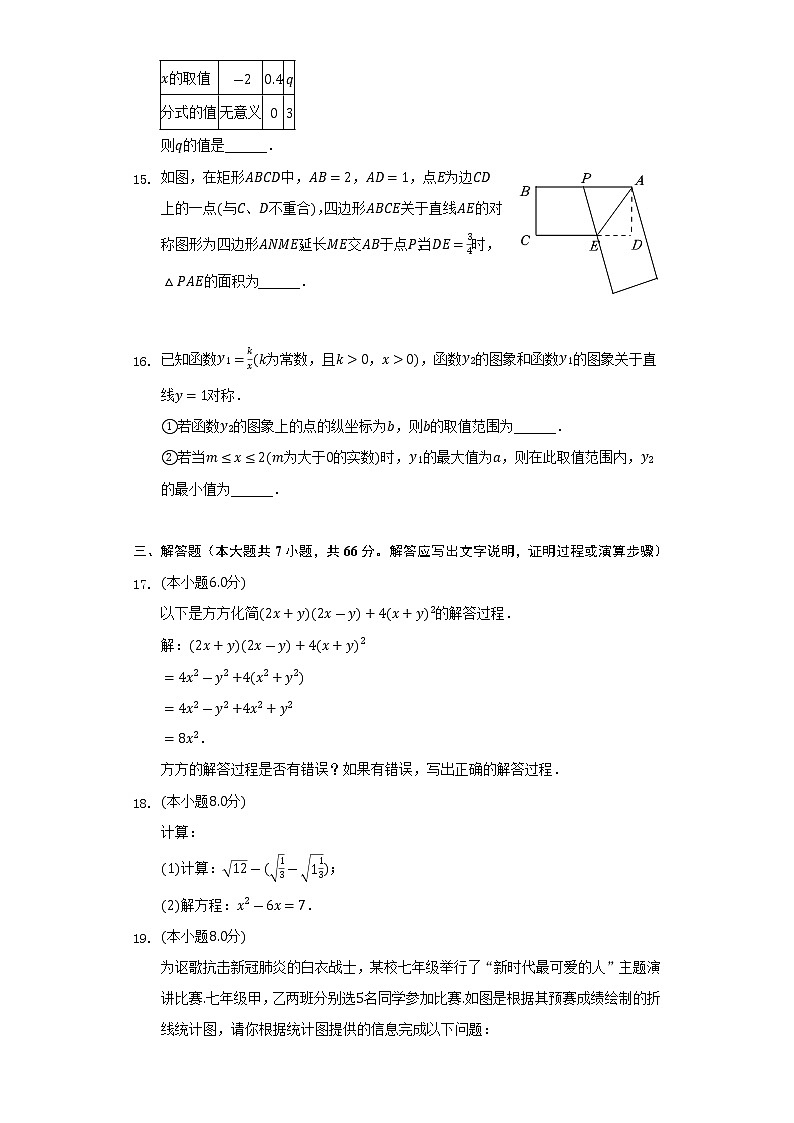 x的取值 −2 0.4 q
分式的值 无意义 0 3
则q的值是______.
15. 如图，在矩形ABCD中，AB=2，AD=1，点E为边CD
上的一点(与C、D不重合)，四边形ABCE关于直线AE的对
称图形为四边形ANME延长ME交AB于点P，当DE=3/4时，
△PAE的面积为______.
B P A
C E D
16. 已知函数y₁=k/x(k为常数，且k>0，x>0)，函数y₂的图象和函数y₁的图象关于直
线y=1对称.
①若函数y₂的图象上的点的纵坐标为b，则b的取值范围为______.
②若当m≤x≤2(m为大于0的实数)时，y₁的最大值为a，则在此取值范围内，y₂
的最小值为______.
三、解答题（本大题共7小题，共66分。解答应写出文字说明，证明过程或演算步骤）
17. (本小题6.0分)
以下是方方化简(2x+y)(2x−y)+4(x+y)²的解答过程.
解：(2x+y)(2x−y)+4(x+y)²
=4x²−y²+4(x²+y²)
=4x²−y²+4x²+y²
=8x².
方方的解答过程是否有错误？如果有错误，写出正确的解答过程.
18. (本小题8.0分)
计算：
(1)计算：√12−(√(1/3)−√(1 1/3))；
(2)解方程：x²−6x=7.
19. (本小题8.0分)
为讴歌抗击新冠肺炎的白衣战士，某校七年级举行了“新时代最可爱的人”主题演
讲比赛.七年级甲，乙两班分别选5名同学参加比赛.如图是根据其预赛成绩绘制的折
线统计图，请你根据统计图提供的信息完成以下问题：